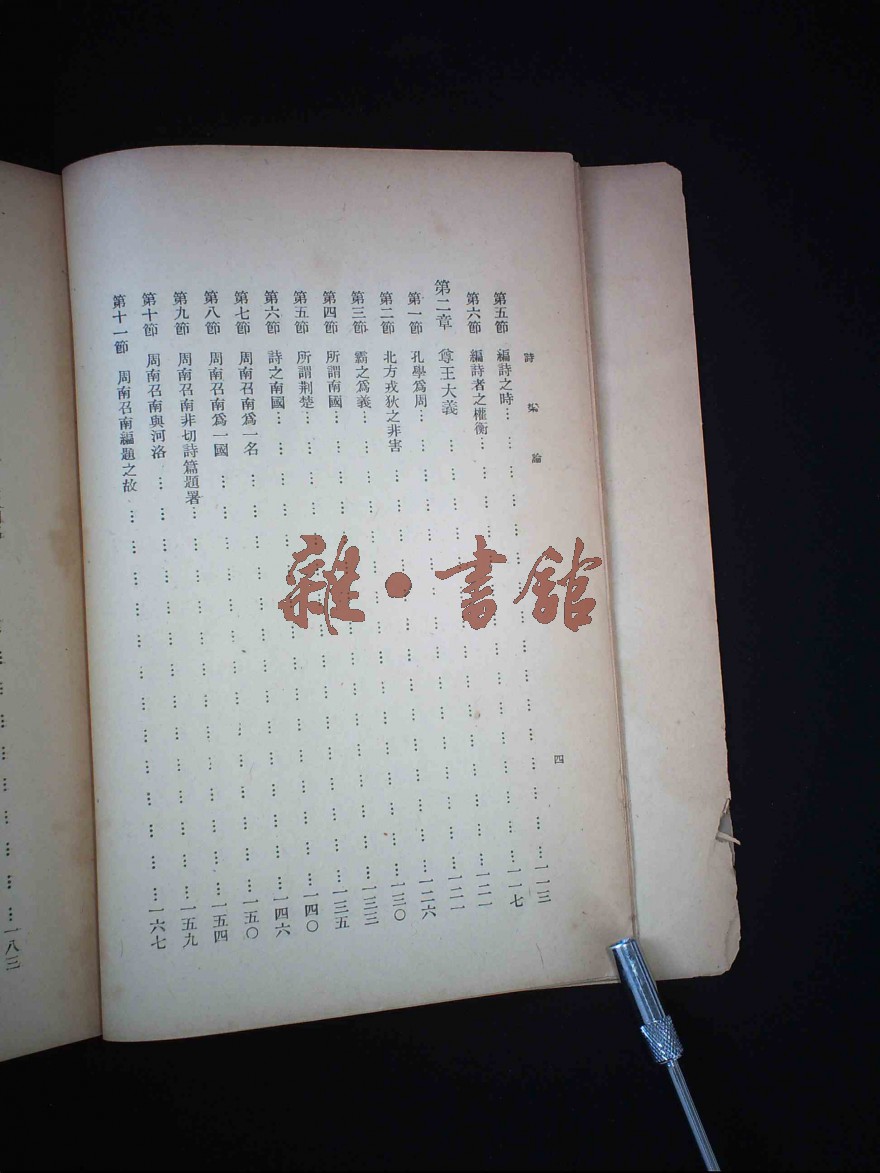 詩樂論
四
第五節　編詩之時………一一三
第六節　編詩者之權衡………一一七
第二章　尊王大義………一二一
第一節　孔學爲周………一二一
第二節　北方戎狄之非害………一二六
第三節　霸之爲義………一三〇
第四節　所謂南國………一三三
第五節　所謂荆楚………一三五
第六節　詩之南國………一四〇
第七節　周南召南爲一名………一四六
第八節　周南召南爲一國………一五〇
第九節　周南召南非切詩篇題署………一五四
第十節　周南召南與河洛………一五九
第十一節　周南召南編題之故………一六七
………一八三
雜·書館